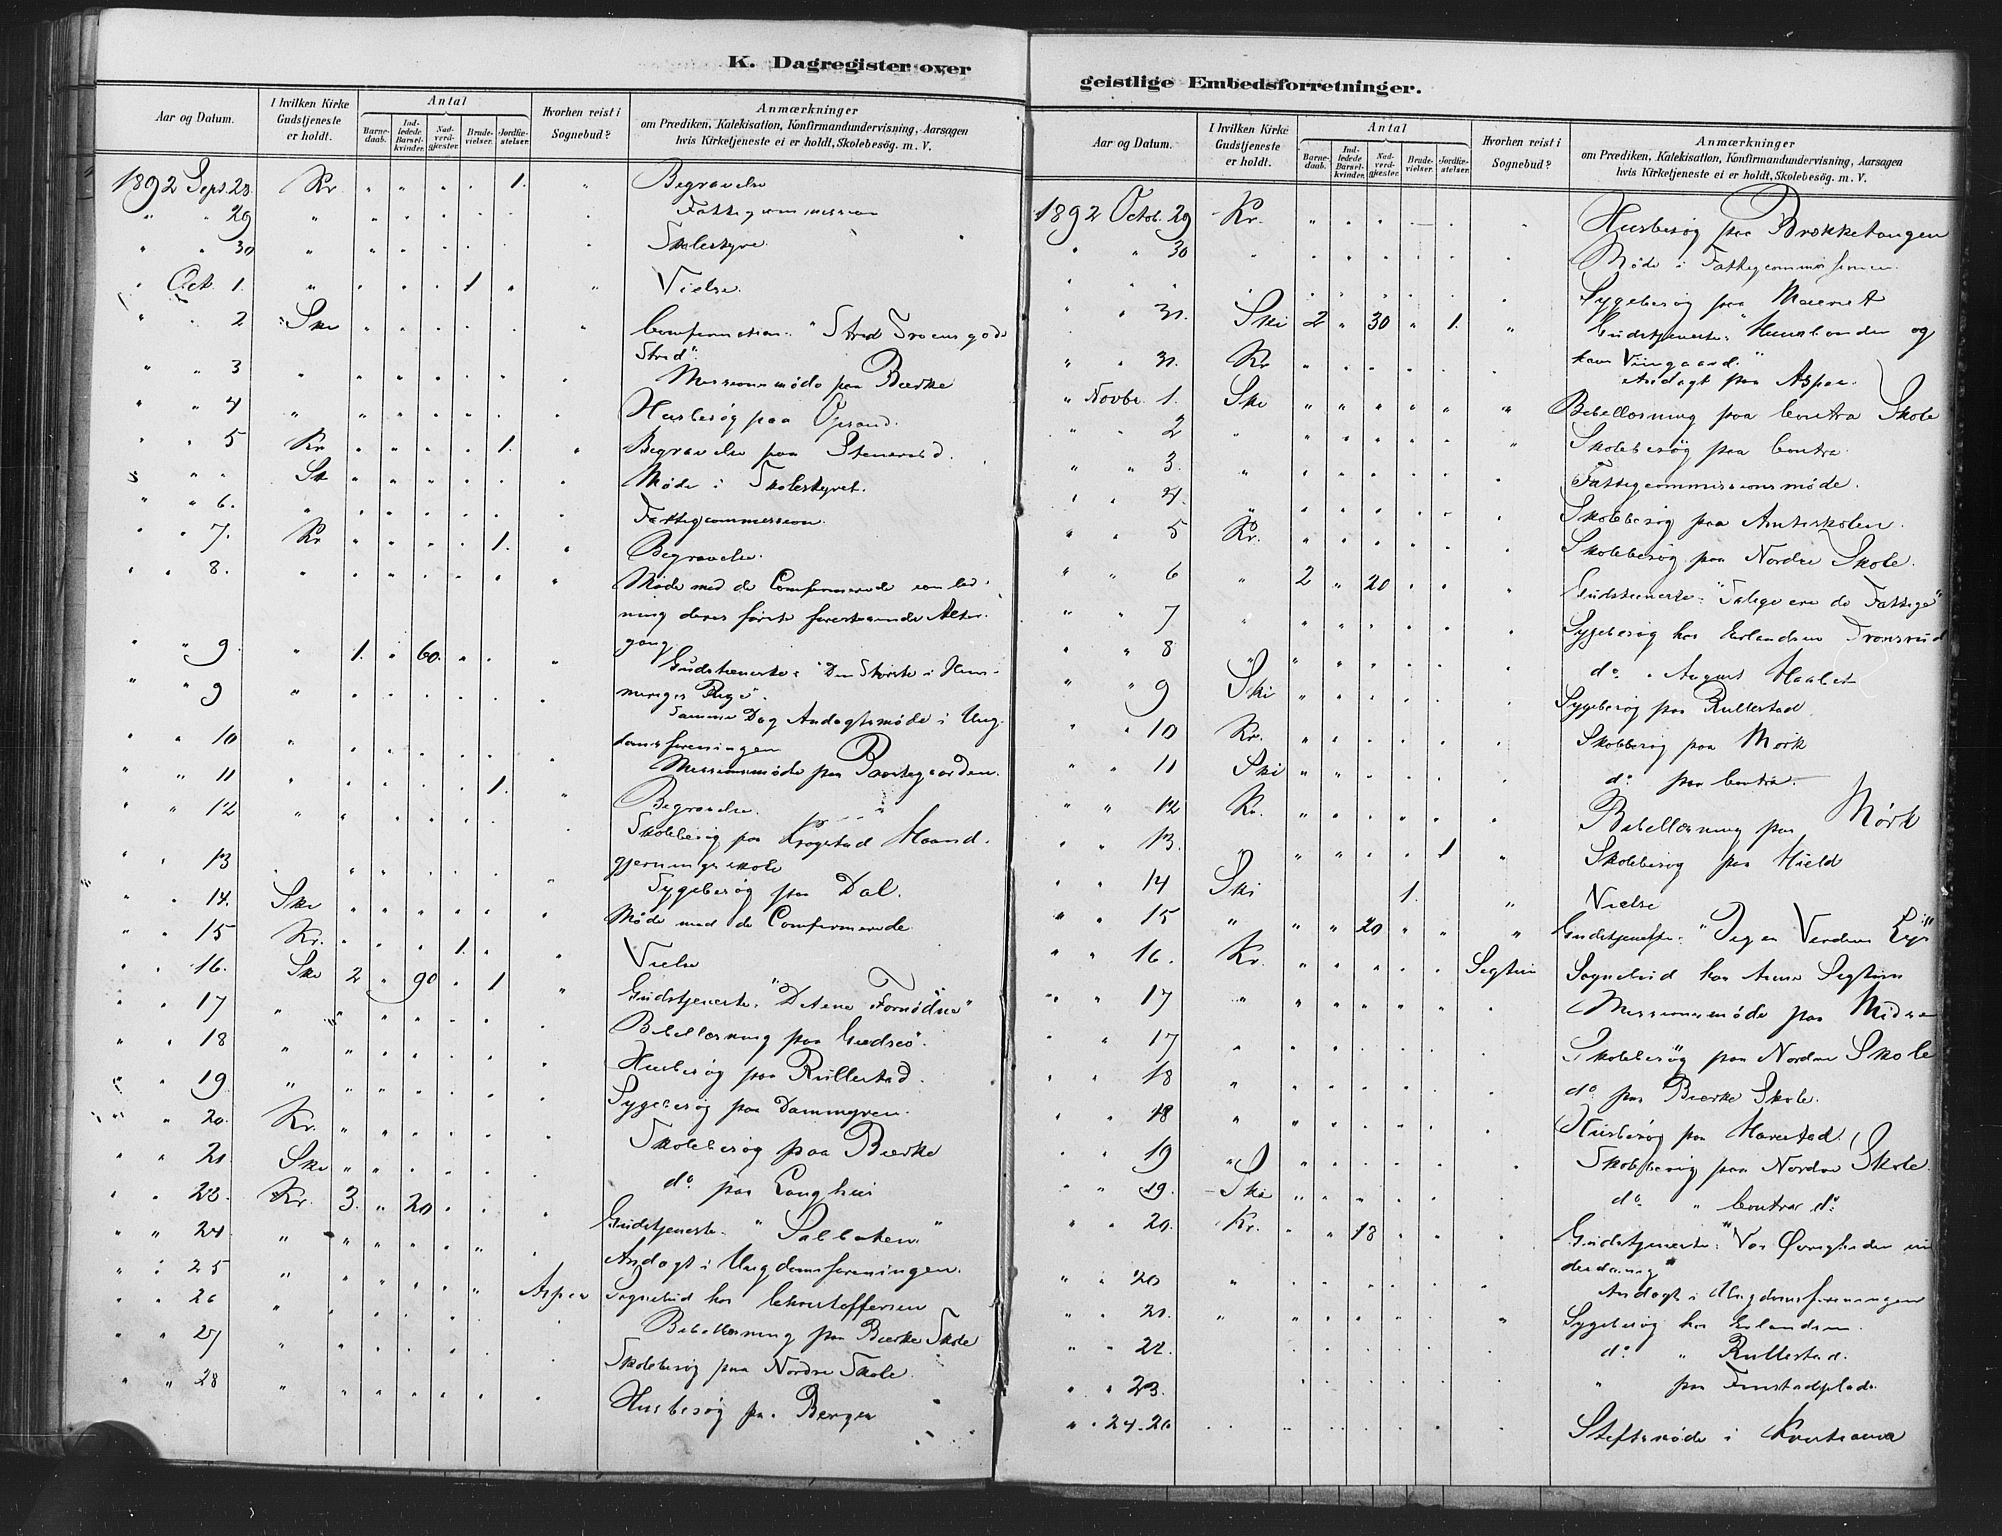 K. Dagregister over
Aar og Datum.
I hvilken Kirke Gudstjeneste er holdt.
Antal
Barne-daab.
Ind-ledede Barsel-kvinder.
Nad-verd-gjester.
Brude-vielser.
Jordfæ-stelser.
Hvorhen reist i Sognebud?
Anmærkninger
om Prædiken, Katekisation, Konfirmandundervisning, Aarsagen
hvis Kirketjeneste ei er holdt, Skolebesög. m. V.
1892 Sept. 28. Kr " " " " 1. " Begravelse
" " 29 " Fattigcommission
" " 30 " Skolestyre
" Oct. 1. " " " " 1 " " Vielse.
" " 2 Ski Confirmation. "Strid Troens gode
Strid".
" " 3 " Missionsmøde paa Bærke
" " 4 " Husbesøg paa Opsand.
" " 5 Kr " " " " 1. " Begravelse paa Stenerud.
" " " Sk Møde i Skolestyret.
" " 6. " Fattigcommission.
" " 7. Kr " " " " 1. " Begravelse.
" " 8. " Møde med de Confirmerede
ning deres første forestaaende Alter-
gang
" " 9 " 1. " 60. " " " Gudstjeneste: "Den Störste i Him-
meriges Rige"
" " 9 " Samme Dag Andagtsmøde i Ung-
domsforeningen
" " 10 " Missionsmøde paa Præstegaarden.
" " 11 " " " " " 1. " Begravelse.
" " 12 " Skolebesøg paa Krogstad Haand-
gjerningsskole
" " 13 " Sygebesøg paa Dal.
" " 14. Ski Møde med de Confirmerede
" " 15 Kr. " " " 1. " " Vielse
" " 16. Ski 2 " 90 " 1 " Gudstjeneste. "Det ene Fornødne"
" " 17 " Bibellæsning paa Gudsiö.
" " 18 " Husbesøg paa Rullestad.
" " 19 " Sygebesøg paa Dammyren.
" " 20. Kr. Skolebesøg paa Bærke
" " 21 Ski do paa Langhus
" " 23. Kr. 3. " 20 " " " Gudstjeneste. "Sabbaten"
" " 24 " Andagt i Ungdomsforeningen.
" " 25 " Aspen Sognebud hos Christoffersen
" " 26 " Bibellæsning paa Bærke Skole
" " 27 " Skolebesøg paa Nordre Skole.
" " 28 " Husbesøg paa Berger
geistlige Embedsforretninger.
Aar og Datum.
I hvilken Kirke Gudstjeneste er holdt.
Antal
Barne-daab.
Ind-ledede Barsel-kvinder.
Nad-verd-gjester.
Brude-vielser.
Jordfæ-stelser.
Hvorhen reist i Sognebud?
Anmærkninger
om Prædiken, Katekisation, Konfirmandundervisning, Aarsagen
hvis Kirketjeneste ei er holdt, Skolebesög. m. V.
1892 Octob. 29 Kr. Husbesøg paa Brækketangen
" " 30 " Møde i Fattigcommissionen.
" " " " Sygebesøg paa Meieriet
" " 31. Ski 2 " 30 " 1. " Gudstjeneste: "Huusbonden og
hans Viingaard."
" " 31. Kr Andagt paa Aspen.
" Novbr. 1. Ski Bibellæsning paa Contra Skole
" " 2 " Skolebesøg paa Contra.
" " 3. " Fattigcommissionsmøde.
" " 4. " Skolebesøg paa Amtsskolen.
" " 5 Kr. Skolebesøg paa Nordre Skole.
" " 6 " 2 " 20 " " " Gudstjeneste: "Salige ere de Fattige"
" " 7 " Sygebesøg hos Erlandsen Tronsrud
" " 8 " do " August Haabet
" " 9 Ski Sygebesøg paa Rullestad
" " 10 Kr. Skolebesøg paa Mørk
" " 11 Ski do paa Contra.
" " 12 Kr. Bibellæsning paa Mørk
" " 13. " " " " " 1 " Skolebesøg paa Hield
" " 14 Ski 1. " Vielse
" " 15 " " " 20 " " " Gudstjeneste. "Jeg er Verdens Lys"
" " 16. Kr. Segtun Sognebud hos Anne Segtun
" " 17 " Missionsmøde paa Midsem
" " 17 " Skolebesøg paa Nordre Skole
" " 18 " do paa Bærke Skole.
" " 18 " Husbesøg paa Harestad.
" " 19 " Skolebesøg paa Nordre Skole.
" " 19. Ski do " Contra do
" " 20. Kr. " " 18 " " " Gudstjeneste: "Vor Øvrigheden un
derdanig"
" " 20 " Andagt i Ungdomsforeningen
" " 21. " Sygebesøg hos Erlandsen.
" " 22. do " Rullestad.
" " 23. " paa Finstadplads.
" " 24-26 Stiftsmøde i Kristiania